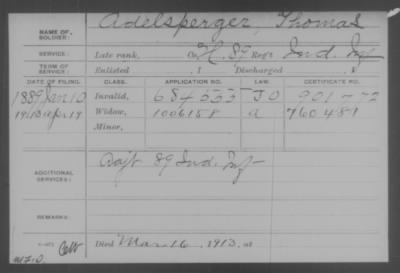 NAME OF SOLDIER: Adelsperger, Thomas
SERVICE: Late rank, Co. H. 89 Reg't Ind. Inf
TERM OF SERVICE: Enlisted , 1 Discharged , 1
DATE OF FILING. CLASS. APPLICATION NO. LAW. CERTIFICATE NO.
1889 Jan 10 Invalid, 684553 901
1913 Apr. 19 Widow, 1006158 a 760481
Minor,
ADDITIONAL SERVICES: 89 Ind. Inf
REMARKS:
Died Mar 16, 1913, at